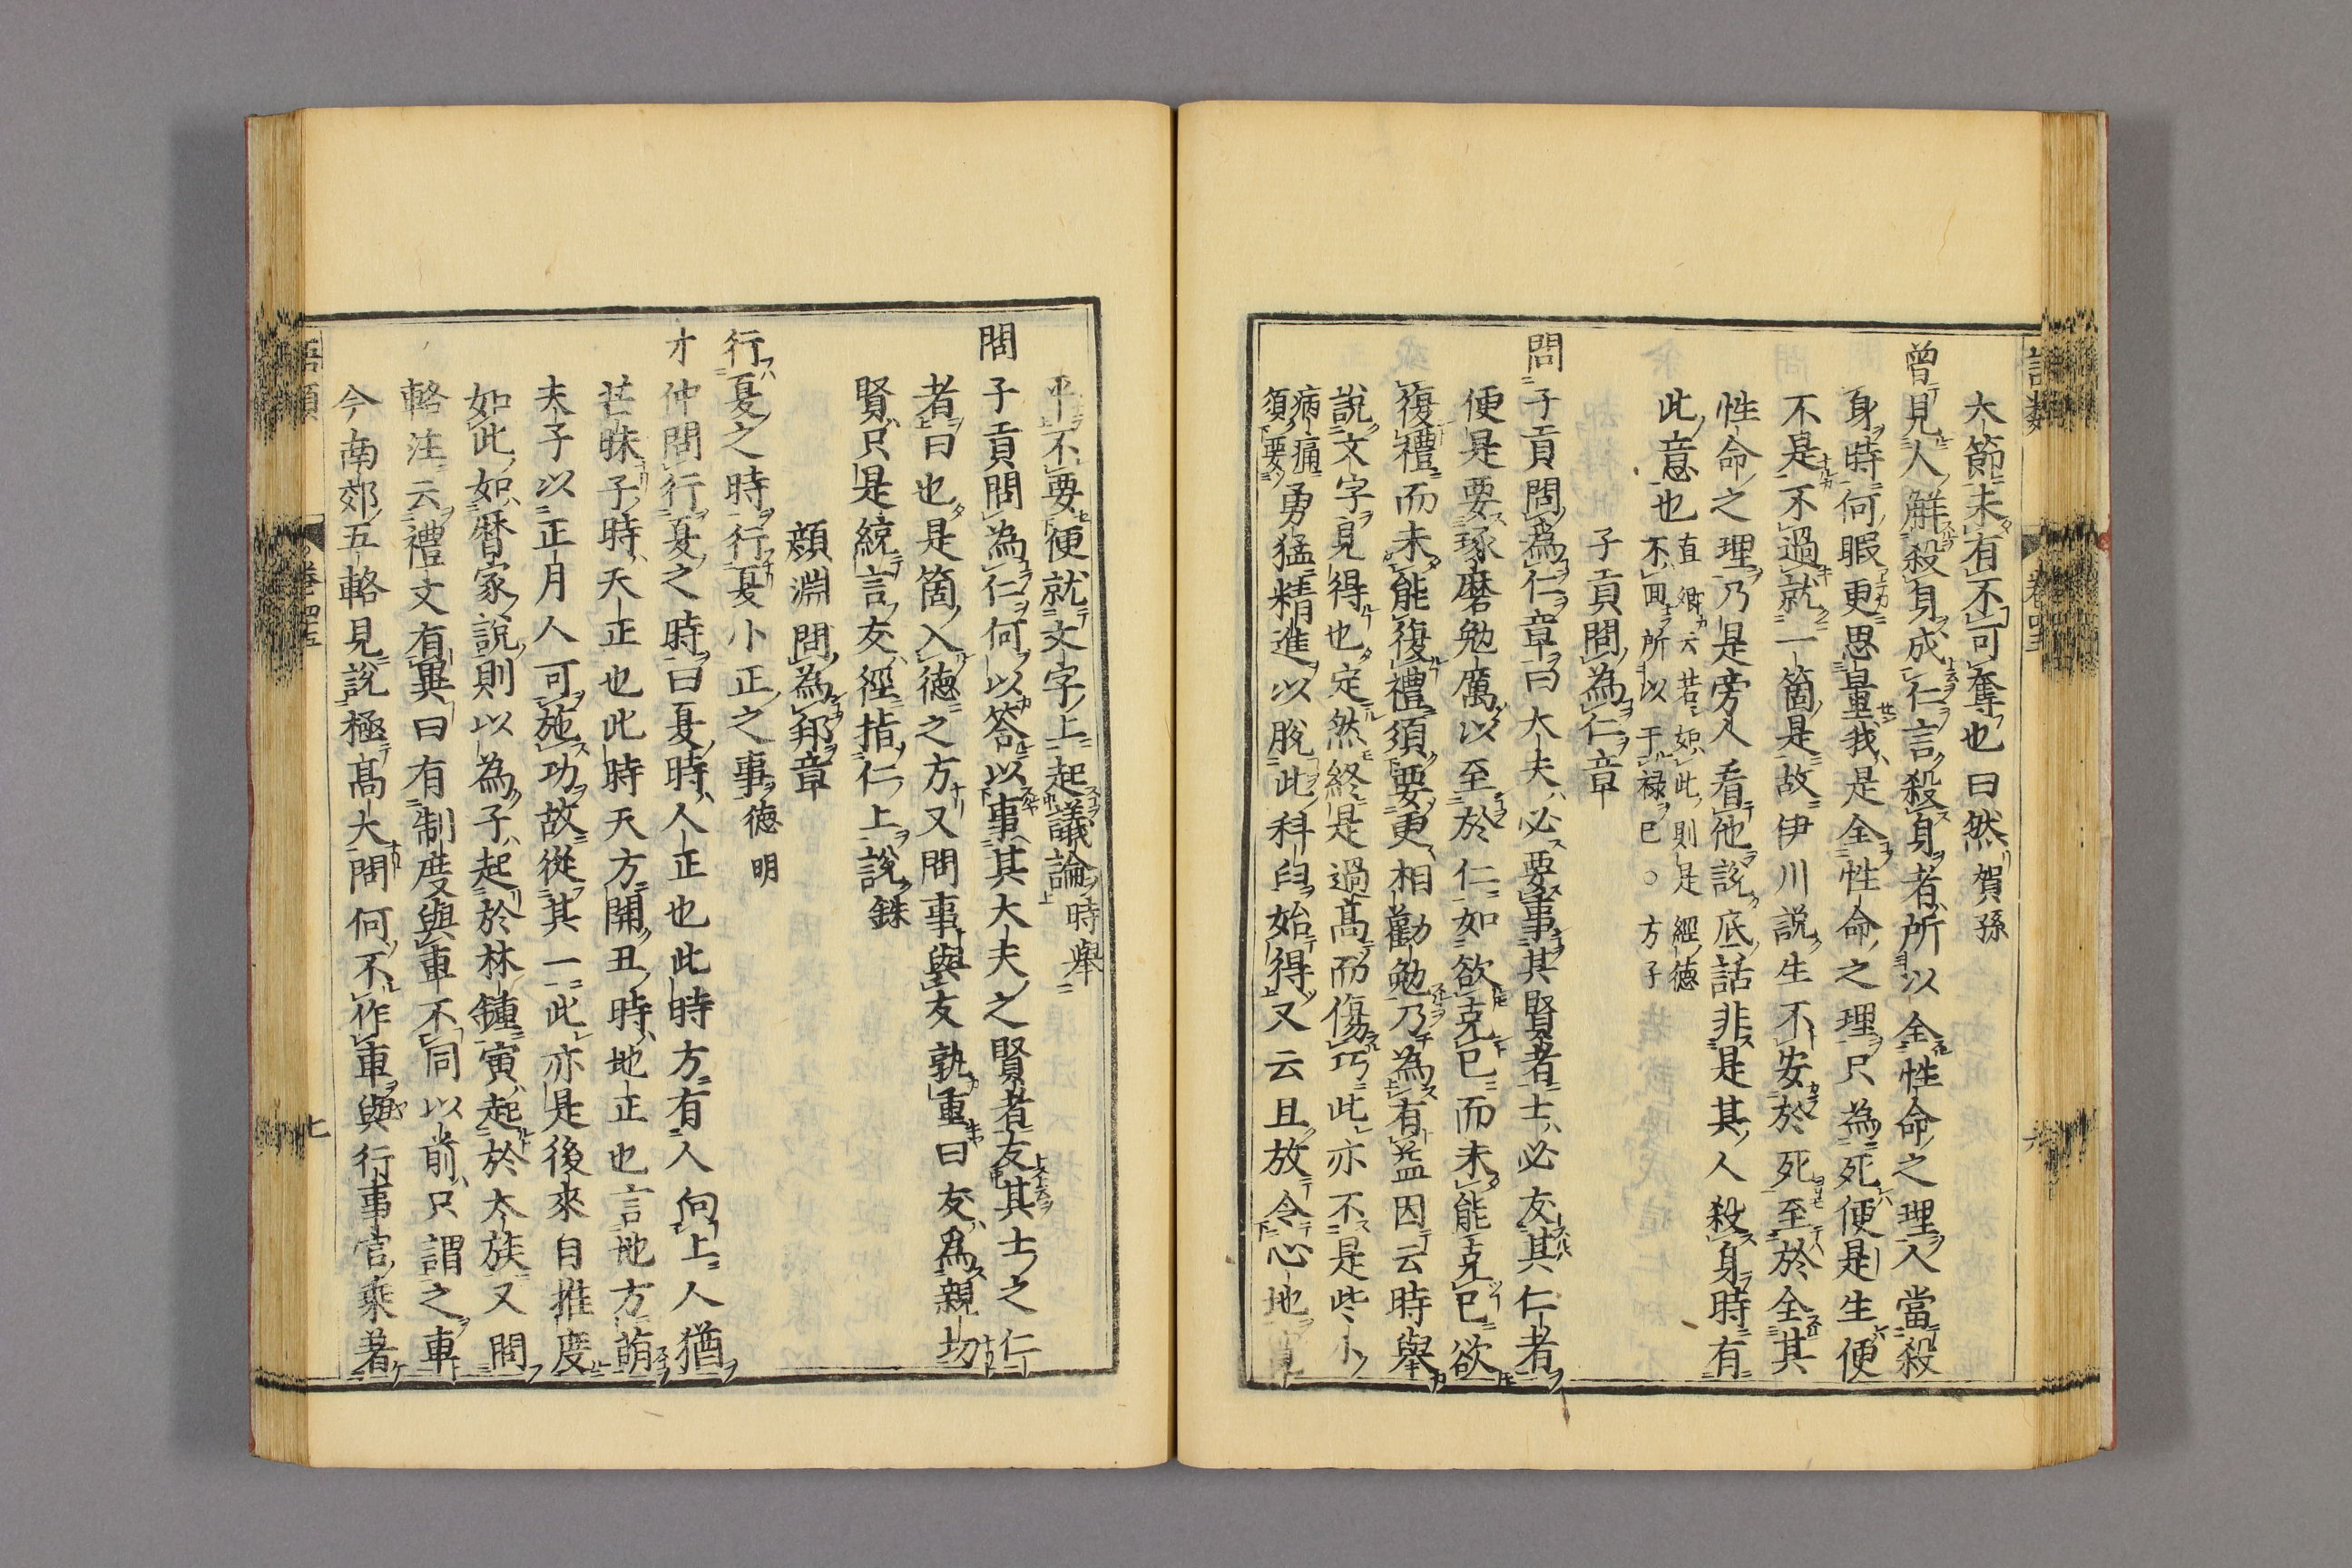 大節未有不可奪也曰然賀孫
曾見人解殺身成仁言殺身者所以全性命之理人當殺
身時何暇更思量我是全性命之理只為死便是生便
不是不過就一箇是故伊川説生不安於死至於全其
性命之理乃是旁人看他説底話非是其人殺身時有
此意也直卿云若如此則是經德
不回所以于禄已○方子
子貢問為仁章
問子貢問為仁章曰大夫必要事其賢者士必友其仁者
便是要琢磨勉厲以至於仁如欲克已而未能克已欲
復禮而未能復禮須要更相勸勉乃為有益因云時舉
說文字見得也定然終是過高而傷巧此亦不是些小
病痛
須要勇猛精進以脫此科臼始得又云且放令心地
平不要便就文字上起議論時舉
問子貢問為仁何以答以事其大夫之賢者友其士之仁
者曰也是箇入德之方又問事與友孰重曰友為親切
賢只是統言友徑指仁上說銖
顔淵問為邦章
行夏之時行夏小正之事德明
才仲問行夏之時曰夏時人正也此時方有人向上人猶
芒昧子時天正也此時天方開丑時地正也言地方萌
夫子以正月人可施功故從其一此亦是後來自推度
如此如曆家說則以為子起於林鍾寅起於太簇又問
輅注云禮文有異曰有制度與車不同以前只謂之車
今南郊五輅見說極高大問何不作車與行事官乘著
語類
卷四十五
六
七